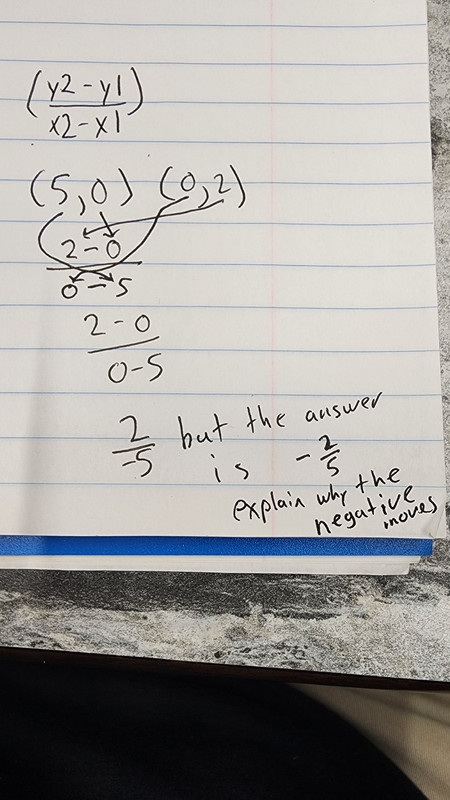 (y2-y1
x2-x1)
(5,0) (0,2)
2-0
0-5
2-0
0-5
2
-5
but the answer
is - 2
5
explain why the
negative
moves